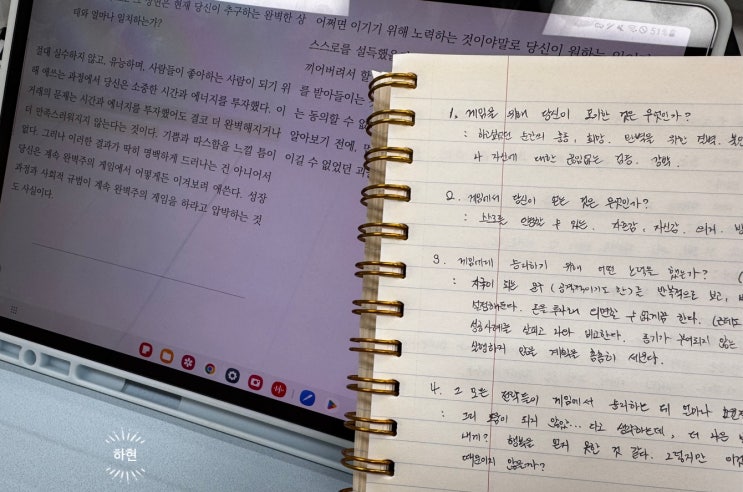 51%
때와 얼마나 일치하는가?
절대 실수하지 않고, 유능하며, 사람들이 좋아하는 사람이 되기 위
해 애쓰는 과정에서 당신은 소중한 시간과 에너지를 투자했다. 이
거래의 문제는 시간과 에너지를 투자했어도 결코 더 완벽해지거나
더 만족스러워지지 않는다는 것이다. 기쁨과 따스함을 느낄 틈이
없다. 그러나 이러한 결과가 딱히 명백하게 드러나는 건 아니어서
당신은 계속 완벽주의 게임에서 어떻게든 이겨보려 애쓴다. 성장
과정과 사회적 규범이 계속 완벽주의 게임을 하라고 압박하는 것
도 사실이다.
어쩌면 이기기 위해 노력하는 것이야말로 당신이 원하는
스스로를 설득했을
끼어버려서 할
를 받아들이는
는 동의할 수 없
알아보기 전에,
이길 수 없었던
1. 게임을 위해 당신이 포기한 것은 무엇인가?
나 자신에 대한 끊임없는 검증, 강박.
2. 게임에서 당신이 얻는 것은 무엇인가?
: 스스로를 인정할 수 있는. 자존감, 자신감.
3. 게임에서 승리하기 위해 어떤 노력을 했는가?
: 자극이 되는 문구 (공격적이기도 한)를 반복적으로 보고,
성공사례를 살피고 나와 비교한다. 동기가 부여되지 않는
실행하지 않을 계획을 촘촘히 세운다.
4. 그 모든 전략들이 게임에서 승리하는 데 얼마나
: 그리 도움이 되지 않았... 다고 생각하는데, 더 나은
내게? 행복을 얻지 못한 것 같다. 그렇지만 이것
때문이지 않을까?
하현